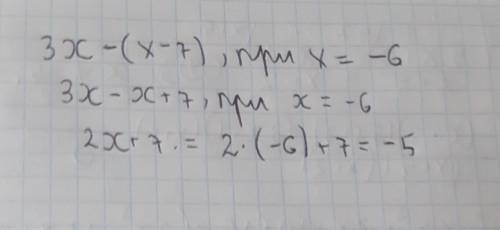 3x - (x - 7), при x = -6
3x - x + 7, при x = -6
2x + 7 = 2 · (-6) + 7 = -5